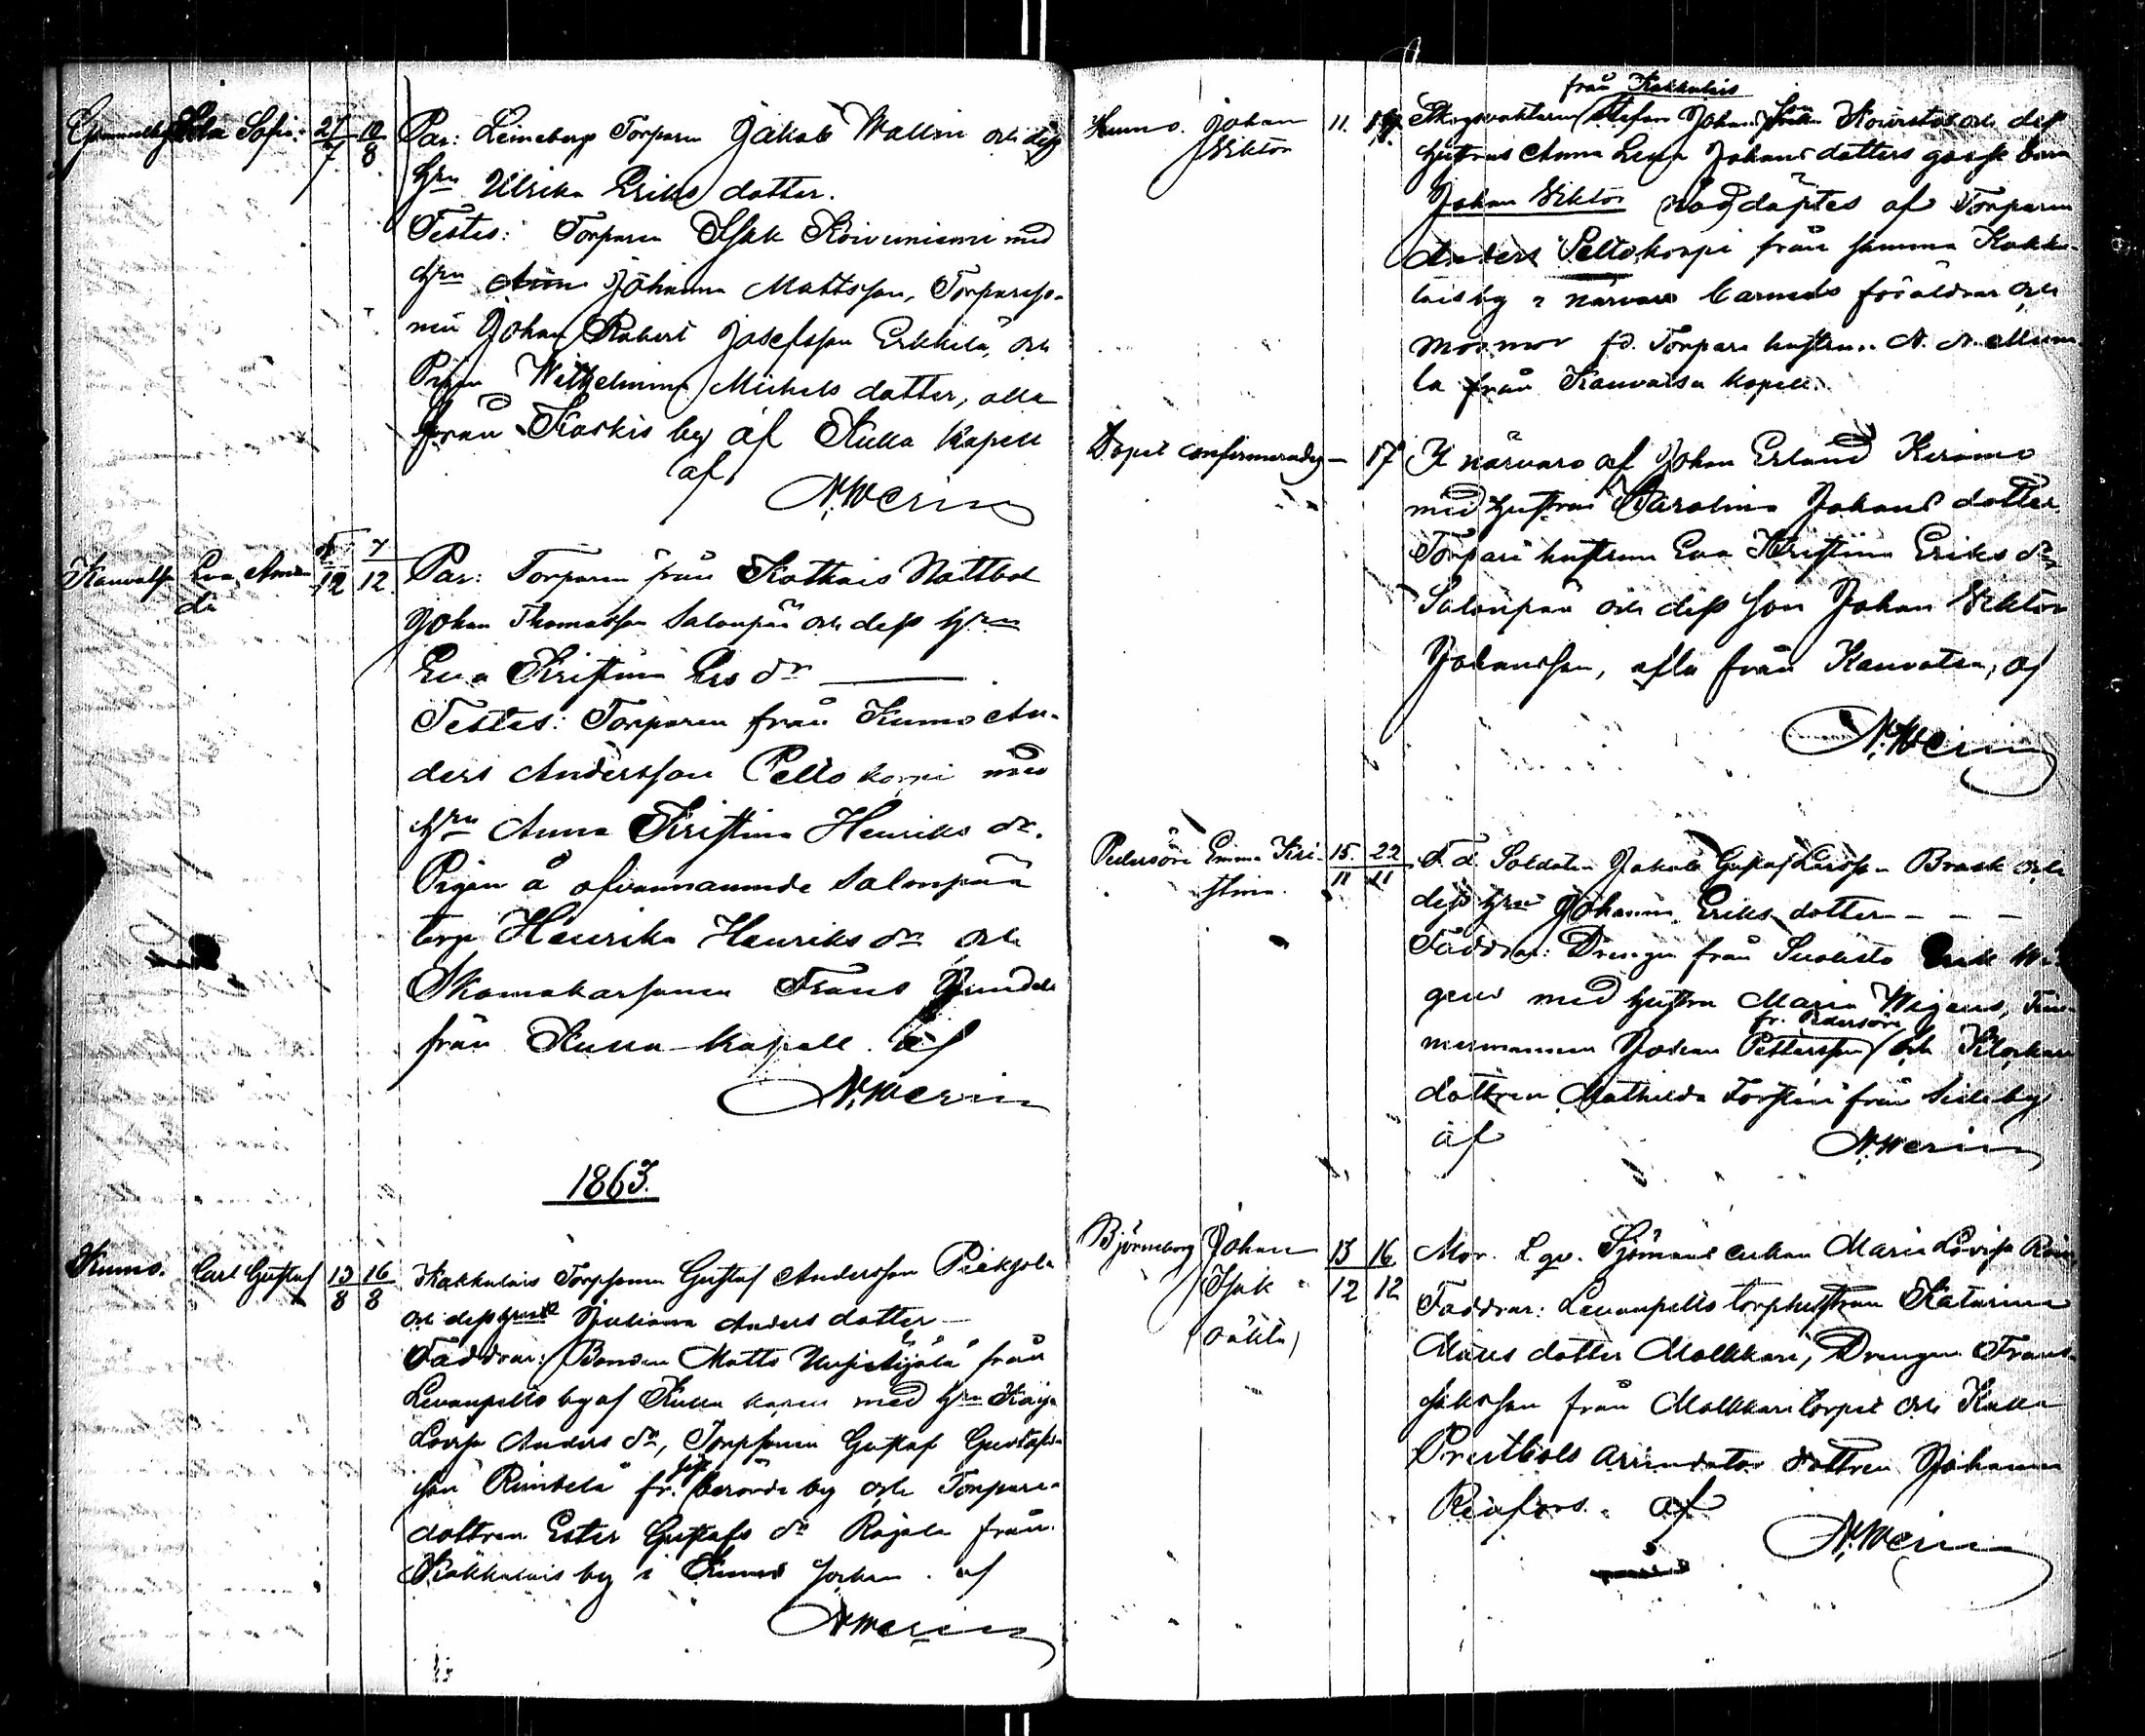 Sofia 27/7 10/8 Par: Leineberg Torparen Jakob Wallin och dess
Hru Ulrika Eriks dotter.
Testes: Torparen Isak Koivuniemi med
Hru Johanna Mattsson, Torpareso-
nen Johan Robert Josefsson Erkkilä, och
Pigan Wilhelmina Mickels dotter, alla
från Karkis by af Kulla Kapell
af
N. Werin
Eva Aman
da 5/12 7/12 Par: Torparen från
Johan Thomasson Salonpää och dess Hru
Eva Kristina Ers dr
Testes: Torparen från Kumo An-
ders Andersson Peltokorpi med
Hru Anna Kristina Henriks dr.
Pigan å ofvannämnde Salonpää
torp Henrika Henriks dr och
Skomakarsonen Frans
från Kulla Kapell af
N. Werin
1863.
Kumo. Carl Gustaf 13/8 16/8 Kakkulais Torpsonen Gustaf Andersson
och dess Juliana Anders dotter
Faddrar: Bonden Matts från
Levanpelto by af Kulla med Hru Kaisa
Lovisa Anders dr, Torpsonen Gustaf Gustafs-
son Rintala fr. berörde by och Torpare-
dottren Ester Gustafs dr Rajala från
Kakkulais by i Kumo socken. af
N. Werin
från Kakkulais
Kumo. Johan 11. Skogvaktaren Stefan Johansson och dess
Viktor hustrus Anna Johans dotters gosse barn
Johan Viktor nöddöptes af Torparen
Anders Peltokorpi från samma Kakku-
lais by i närvaro barnets föräldrar och
mormor fd. Torpare hustrun N. N.
la från Kauvatsa Kapell.
Dopet confirmerades 17 I närvaro af Johan Erland
med hustrun Karolina Johans dotter
Torpare hustrun Eva Kristina Eriks dr
Salonpää och dess son Johan Viktor
Johansson, alla från Kauvatsa, af
N. Werin
Pedersöre Emma Kri- 15/11 22/11 F.d. Soldaten Jakob Gustaf Larsson Brask och
stina. dess Hru Johanna Eriks dotter
Faddrar: Drengen från Suolisto Erik Wi-
gens med hustru Maria Wigens, Tim-
fr. Pedersöre
mermannen Johan Pettersson och Klockare
dottren Mathilda från by
af
N. Werin
Björneborg Johan 13/12 16/12 Mor. Sjömans enkan Maria Lovisa
Isak
(oäkta)
Faddrar: Levanpelto torphustrun Katarina
dotter Malkkari, Drengen Frans
Isaksson från Malkkari torpet och Kulla
Prestbols arrendator dottren Johanna
af
N. Werin